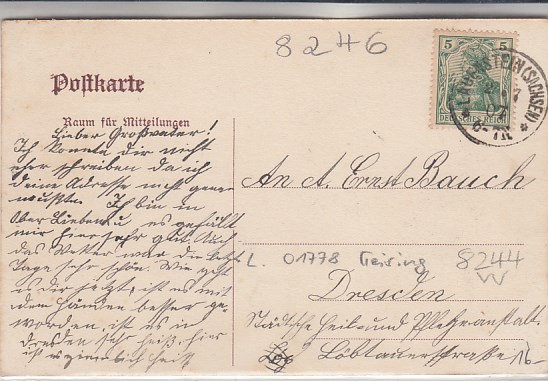 8246
Postkarte
Raum für Mitteilungen
5 5
DEUTSCHES REICH
LAUENSTEIN (SACHSEN)
07
6-7N.
Lieber Großvater!
Ich konnte dir nicht
eher schreiben da ich
deine Adresse nicht genau
wußte. Ich bin in
Ober Liebenau es gefällt
mir hier sehr gut. Auch
das Wetter war die letzt
Tage sehr schön. Wie geht
es dir jetzt, ist es mit
dem Händen besser ge-
worden, ist es in
Dresden sehr heiß, hier
ist es ziemlich heiß
An A. Ernst Bauch
L. 01778 Geising 8244
Dresden
Städtische Heil- und Pflegeanstalt.
Löbtauerstraße